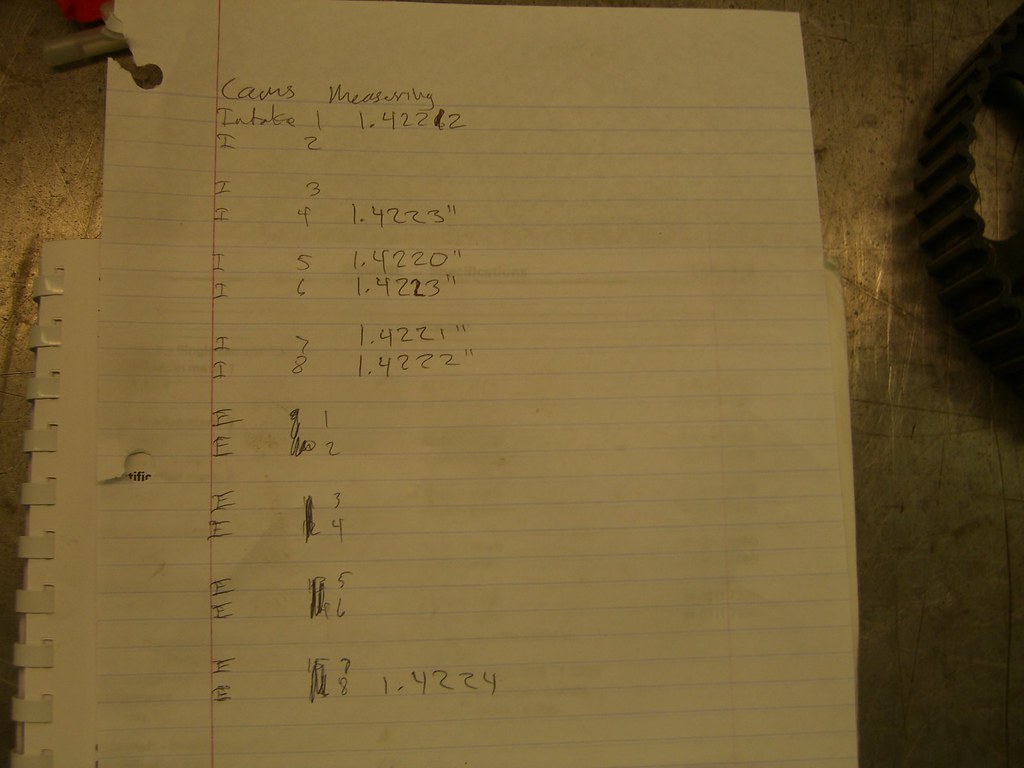 Cams Measuring
Intake 1 1.4222
I 2
I 3
I 4 1.4223"
I 5 1.4220"
I 6 1.4223"
I 7 1.4221"
I 8 1.4222"
E 1
E 2
tific
E 3
E 4
E 5
E 6
E 7
E 8 1.4224